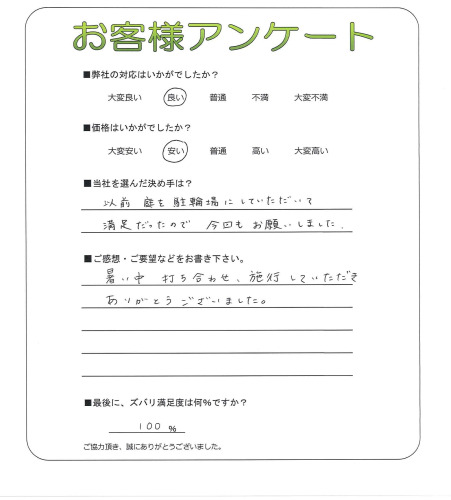 お客様アンケート
■弊社の対応はいかがでしたか？
大変良い　良い　普通　不満　大変不満
■価格はいかがでしたか？
大変安い　安い　普通　高い　大変高い
■当社を選んだ決め手は？
以前 庭を 駐輪場にしていただいて
満足だったので 今回も お願いしました.
■ご感想・ご要望などをお書き下さい。
暑い中 打ち合わせ、施行していただき
ありがとうございました。
■最後に、ズバリ満足度は何％ですか？
100 ％
ご協力頂き、誠にありがとうございました。